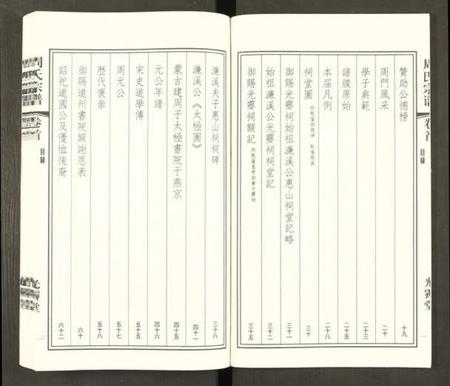 周氏宗譜
卷首
目錄
光霽堂
贊助公德榜 十九
周門風采 二十
學子典範 二十四
譜牒原始 二十八
本届凡例 二十三
祠堂圖 三十
御賜光霽祠始祖濂溪公惠山祠堂記略 三十二
始祖濂溪公光霽祠堂記 三十三
御賜光霽祠額記 三十五
濂溪夫子惠山祠祠碑 三十八
濂溪公《太極圖》 四十一
蒙古建周子太極書院于燕京 四十四
元公年譜 四十五
宋史道學傳 五十四
周元公 五十七
歷代褒崇 五十八
御賜道州書院額謝恩表 六十
詔祀道國公及優恤後裔 六十二
周氏宗譜
卷首
目錄
光霽堂